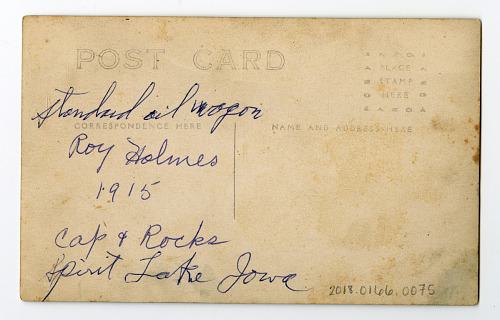 POST CARD
PLACE
STAMP
HERE
Standard oil wagon
CORRESPONDENCE HERE
NAME AND ADDRESS HERE
Roy Holmes
1915
Cap & Rocks
Spirit Lake Iowa
2018.0166.0075